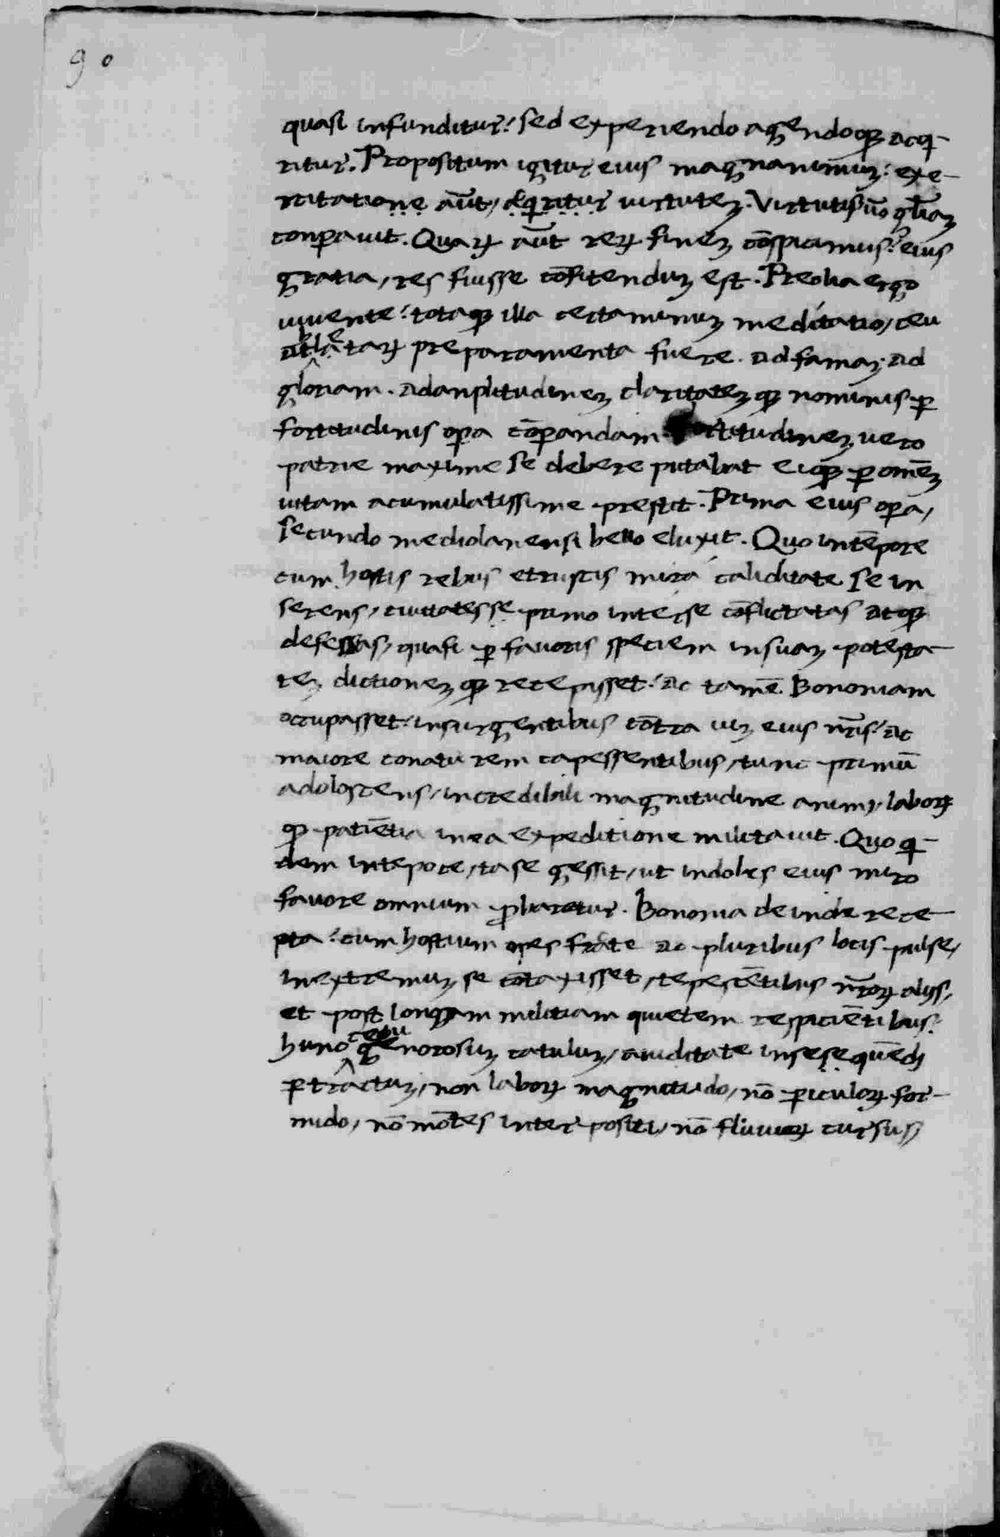 90
quasi infunditur: sed experiendo agendoqꝫ acq̄-
ritur. Propositum igitur eius magnanimuꝫ: exe-
rcitatione aūt, acq̄ritur virtuteꝫ. Virtutisꝫ v̄o gl̄iaꝫ
conꝑavit. Quaꝝ aūt reꝝ fineꝫ cōspicimus: eius
gratia, res fuisse cōfitenduꝫ est. Prelia ergo
iuvente: totaqꝫ illa certaminuꝫ meditatio, ceu
athletaꝝ preparamenta fuere. ad famaꝫ. ad
gloriam. ad anplitudineꝫ claritateꝫqꝫ nominis ꝑ
fortitudinis oꝑa cōꝑandam. Fortitudineꝫ vero
patrie maxime se debere putabat eiqꝫ ꝑ omēꝫ
vitam acumulatissime prestit. Prima eius oꝑa,
secundo mediolanensi bello eluxit. Quo intēpore
cum hostis rebus etruscis mira caliditate se in
serens, civitates se primo inter se cōflictatas atqꝫ
defessas, quasi ꝑ favoris speciem insuaꝫ potesta-
teꝫ dictioneꝫqꝫ recepisset: ac tamē Bononiam
occupasset, insurgentibus cōtra viꝫ eius nr̄is: ac
maiore conatu rem capessentibus, tunc primū
adolescens, incredibili magnitudine animi, laboꝝ
qꝫ patiētia in ea expeditione militavit. Quo q̄-
dem intepore, ita se gessit, ut indoles eius miro
favore omnium ꝓbaretur. Bononia deinde rece-
pta: cum hostium opes fracte ac pluribus locis pulse,
inextremuꝫ se cōtraxisset, tepescētibus nr̄oꝝ aliis,
et post longam militiam quietem respiciētibus:
hunc ceu generosuꝫ catuluꝫ, aviditate insesequēdi
ꝑtractuꝫ, non laboꝝ magnitudo, nō ꝑiculoꝝ for-
mido, nō mōtes interpositi, nō fluvioꝝ cursus